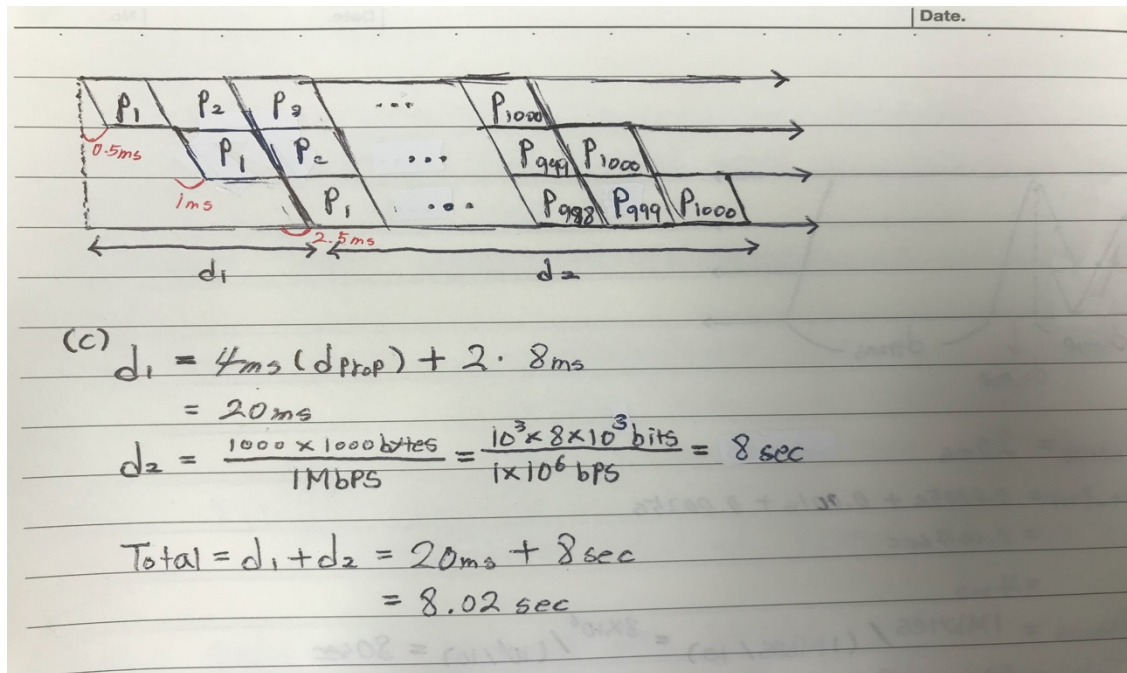 Date.
P1 P2 P3 ... P1000
0.5ms P1 P2 ... P999 P1000
1ms P1 ... P988 P999 P1000
2.5ms
d1 d2
(c)
d1 = 4ms (dprop) + 2 · 8ms
= 20ms
d2 = 1000 x 1000 bytes / 1Mbps = 10^3 x 8 x 10^3 bits / 1x10^6 bps = 8 sec
Total = d1 + d2 = 20ms + 8 sec
= 8.02 sec